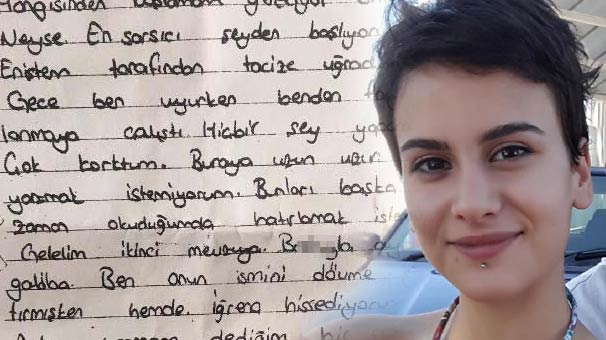 Hangisinden başlamam gerekiyor
Neyse. En sarsıcı şeyden başlıyor
Eniştem tarafından tacize uğrad
Gece ben uyurken benden fay
lanmaya çalıştı. Hiçbir şey yapa
Çok korktum. Buraya uzun uzun
yazmak istemiyorum. Bunları başka
zaman okuduğumda hatırlamak iste
Gelelim ikinci mevzuya. B
galiba. Ben onun ismini dövme
tırmışken hemde. İğrenç hissediyoru
dediğim bir